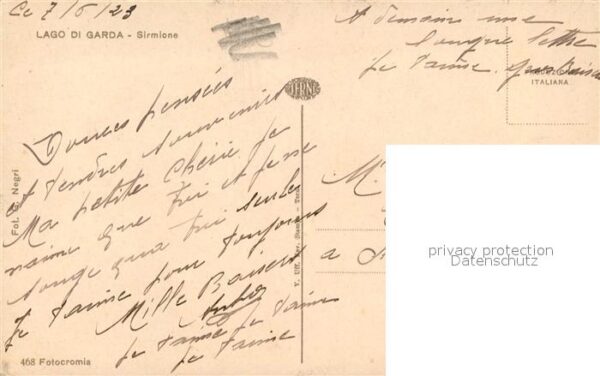 Ce 7/6/23
LAGO DI GARDA - Sirmione
A demain une
longue lettre
Je t'aime. gros Baisers
PRODUZIONE
ITALIANA
TERNI
Douces pensées
et tendres souvenirs
Ma petite Chérie je
n'aime que toi et je ne
songe qu'a toi seule
Je t'aime pour toujours
Mille Baisers
Je t'aime Je t'aime
Je t'aime
M.
a
Fot. G. Negri
468 Fotocromia
privacy protection
Datenschutz